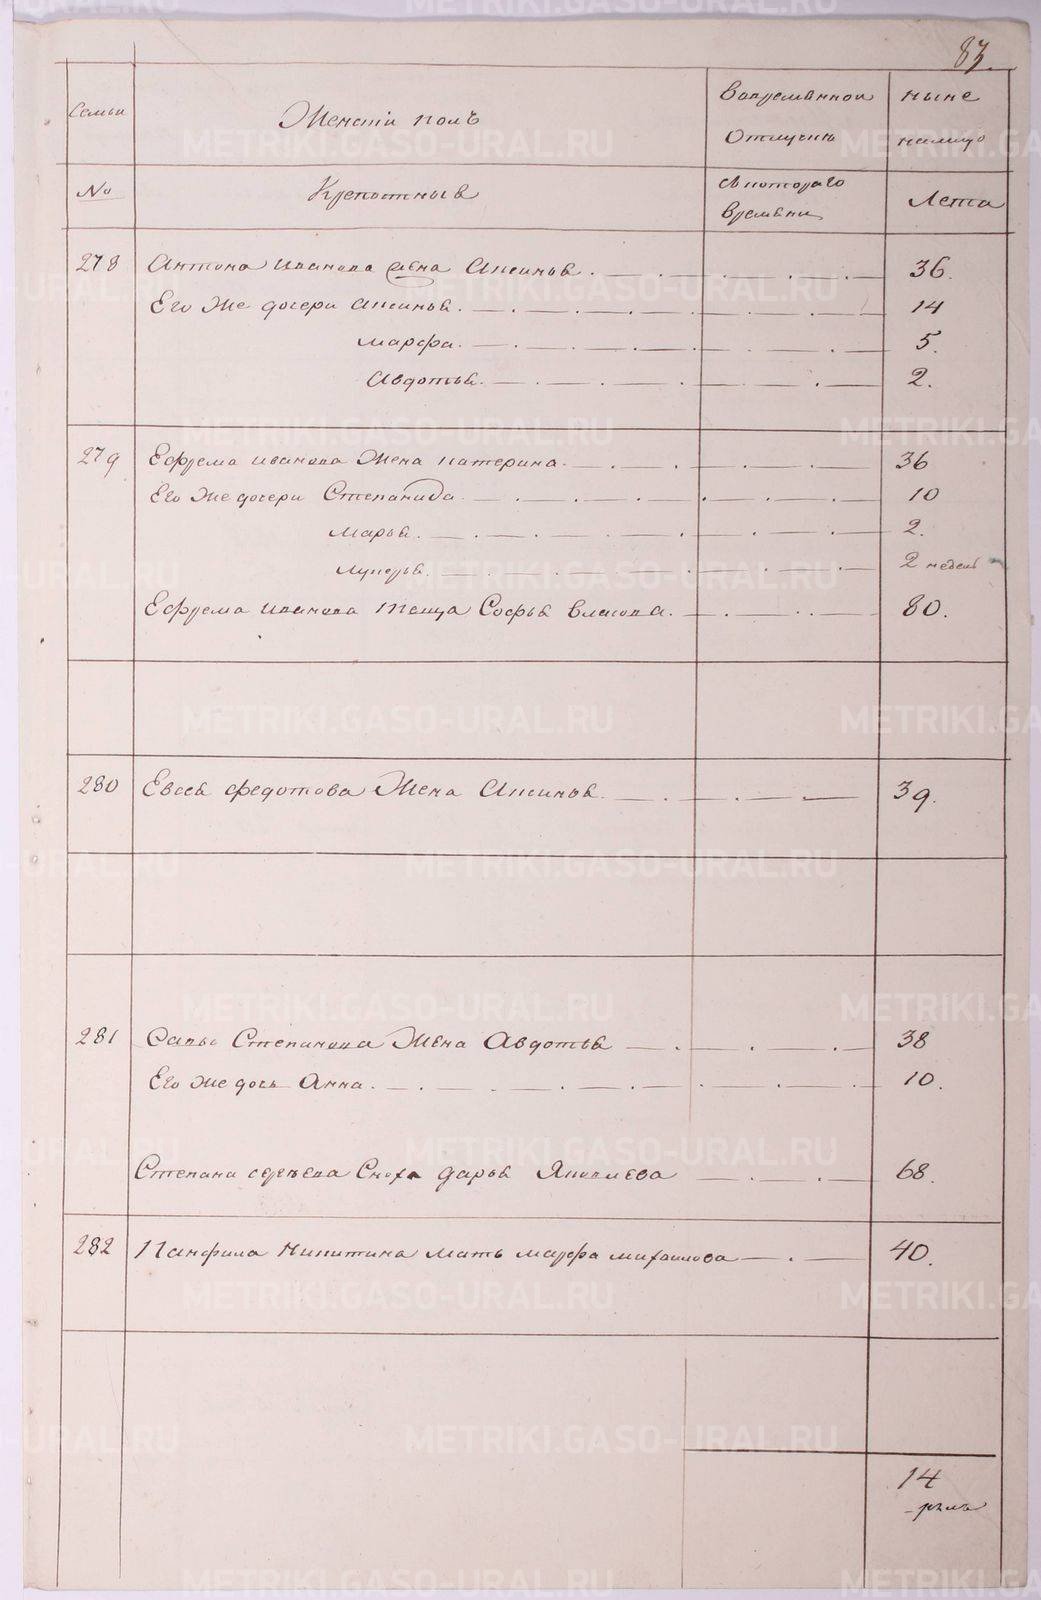 83.
Семьи
Женскiй полъ
Вовременной
отлучкѣ
ныне
налицо
№
Крепостныѣ
съ котораго
времѣни
Лета
278 Антона Иванова жена Аксиньѣ. 36.
Его же дочери Аксиньѣ. 14
Марфа. 5.
Авдотьѣ. 2.
279 Ефрема Иванова Жена Катерина. 36
Его же дочери Степанида 10
Марьѣ. 2.
Лукерьѣ. 2 недели
Ефрема Иванова Теща Софьѣ Власова. 80.
280 Евсеѣ Федотова Жена Аксиньѣ. 39.
281 Степанова Жѣна Авдотьѣ 38
Его же дочь Анна. 10.
Степана Сноха Дарьѣ Яковлева 68.
282 Панфила Никитина мать Марфа Михаилова 40.
14
METRIKI.GASO-URAL.RU